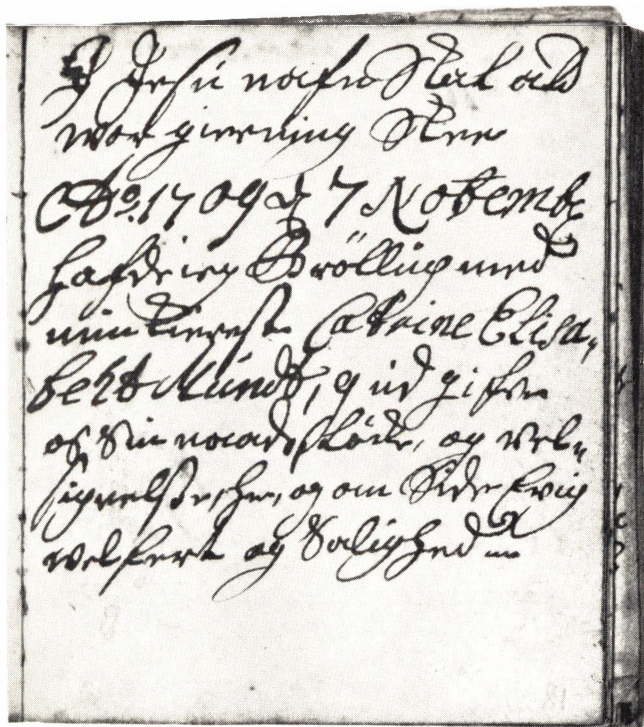 I Jesu nafn Skal ald
wor gierning Skee
Ao. 1709 d 7 Novemb:
hafde ieg Bröllup med
min kiereste Catrine Elisa-
beht Mundt, g ud gifve
os Sin naade, og vel-
signelse, her, og om Sider Evig
velfert og Salighed